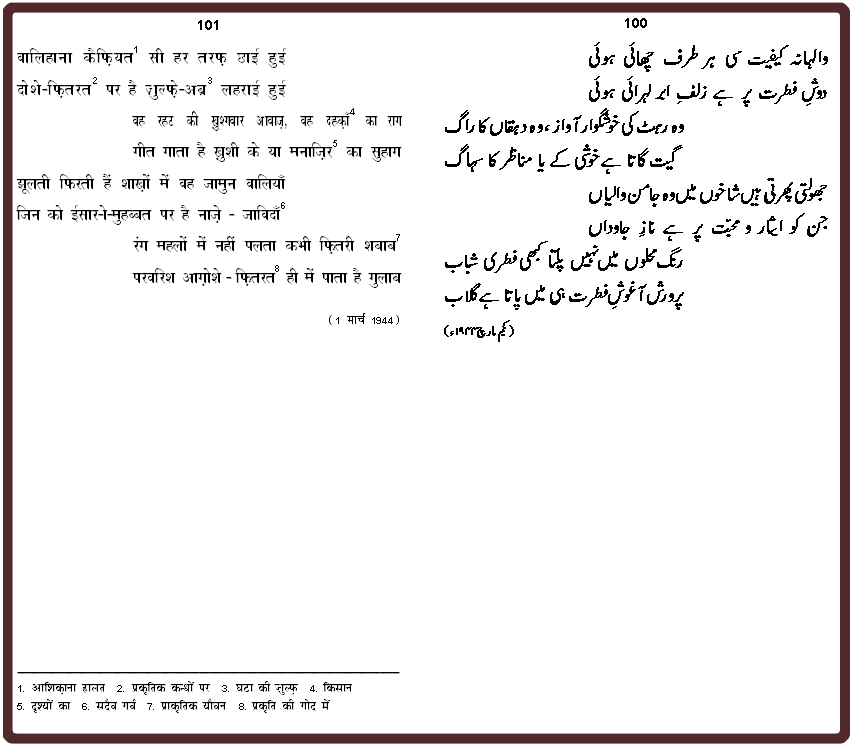 101
वालिहाना कैफ़ियत1 सी हर तरफ़ छाई हुई
दोशे-फ़ितरत2 पर है ज़ुल्फ़े-अब्र3 लहराई हुई
वह रहट की ख़ुशगवार आवाज़, वह दहक़ाँ4 का राग
गीत गाता है ख़ुशी के या मनाज़िर5 का सुहाग
झूलती फिरती हैं शाख़ों में वह जामुन वालियाँ
जिन को ईसार-ो-मुहब्बत पर है नाज़े - जाविदाँ6
रंग महलों में नहीं पलता कभी फ़ितरी शवाब7
परवरिश आग़ोशे - फ़ितरत8 ही में पाता है गुलाब
(1 मार्च 1944)
1. आशिक़ाना हालत 2. प्रकृतिक कन्धों पर 3. घटा की ज़ुल्फ़ 4. किसान
5. दृश्यों का 6. सदैव गर्व 7. प्राकृतिक यौवन 8. प्रकृति की गोद में
100
والہانہ کیفیت سی ہر طرف چھائی ہوئی
دوشِ فطرت پر ہے زلفِ ابر لہرائی ہوئی
وہ رہٹ کی خوشگوار آواز، وہ دہقاں کا راگ
گیت گاتا ہے خوشی کے یا مناظر کا سہاگ
جھولتی پھرتی ہیں شاخوں میں وہ جامن والیاں
جن کو ایثار و محبّت پر ہے نازِ جاوداں
رنگ محلوں میں نہیں پلتا کبھی فطری شباب
پرورش آغوشِ فطرت ہی میں پاتا ہے گلاب
(یکم مارچ ۱۹۴۴ء)